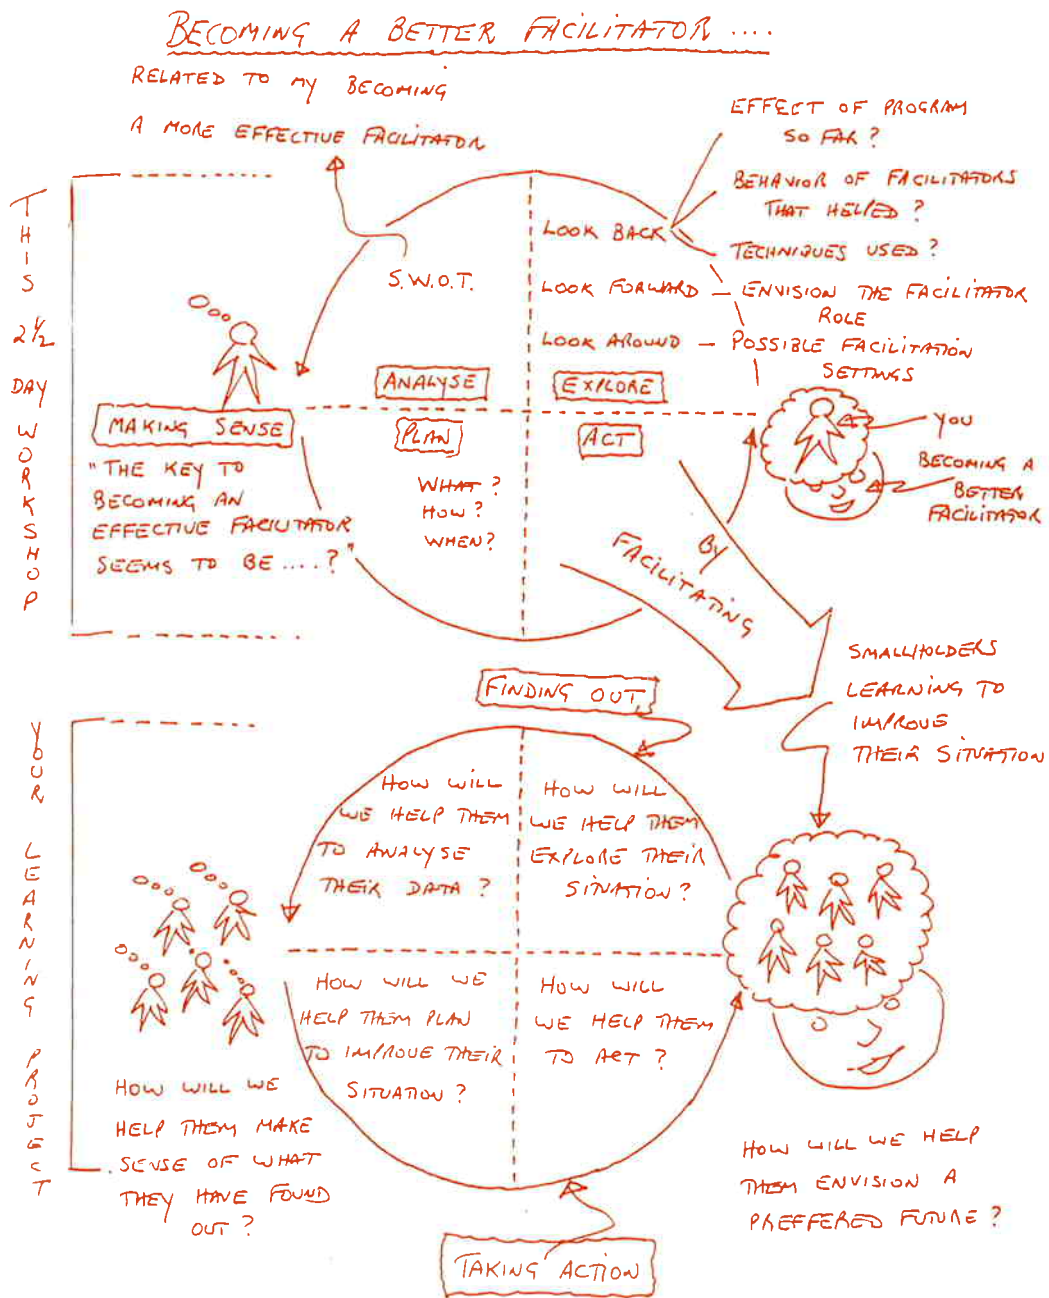 BECOMING A BETTER FACILITATOR ....
RELATED TO MY BECOMING
A MORE EFFECTIVE FACILITATOR
EFFECT OF PROGRAM
SO FAR?
BEHAVIOR OF FACILITATORS
THAT HELPED?
TECHNIQUES USED?
LOOK BACK
LOOK FORWARD – ENVISION THE FACILITATOR
ROLE
LOOK AROUND – POSSIBLE FACILITATION
SETTINGS
S.W.O.T.
ANALYSE
EXPLORE
PLAN
ACT
THIS 2½ DAY WORKSHOP
MAKING SENSE
"THE KEY TO
BECOMING AN
EFFECTIVE FACILITATOR
SEEMS TO BE ....?"
WHAT?
HOW?
WHEN?
YOU
BECOMING A
BETTER
FACILITATOR
BY
FACILITATING
SMALLHOLDERS
LEARNING TO
IMPROVE
THEIR SITUATION
FINDING OUT
YOUR LEARNING PROJECT
HOW WILL
WE HELP THEM
TO ANALYSE
THEIR DATA?
HOW WILL
WE HELP THEM
EXPLORE THEIR
SITUATION?
HOW WILL WE
HELP THEM PLAN
TO IMPROVE THEIR
SITUATION?
HOW WILL
WE HELP THEM
TO ACT?
HOW WILL WE
HELP THEM MAKE
SENSE OF WHAT
THEY HAVE FOUND
OUT?
HOW WILL WE HELP
THEM ENVISION A
PREFFERED FUTURE?
TAKING ACTION